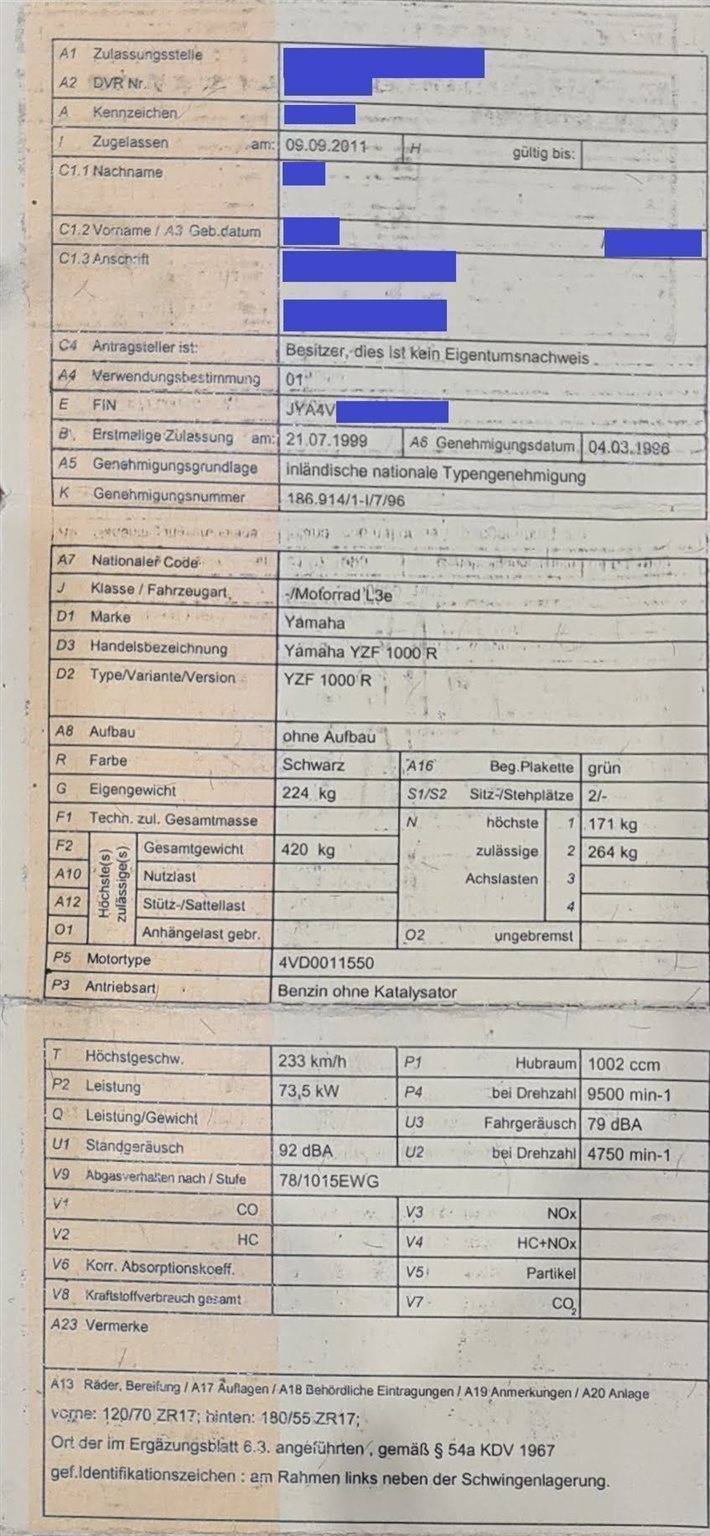 A1 Zulassungsstelle
A2 DVR Nr.
A Kennzeichen
I Zugelassen am: 09.09.2011 H gültig bis:
C1.1 Nachname
C1.2 Vorname / A3 Geb.datum /
C1.3 Anschrift
C4 Antragsteller ist: Besitzer, dies ist kein Eigentumsnachweis
A4 Verwendungsbestimmung 01
E FIN JYA4V
B Erstmalige Zulassung am: 21.07.1999 A6 Genehmigungsdatum 04.03.1996
A5 Genehmigungsgrundlage inländische nationale Typengenehmigung
K Genehmigungsnummer 186.914/1-I/7/96
A7 Nationaler Code
J Klasse / Fahrzeugart -/Motorrad L3e
D1 Marke Yamaha
D3 Handelsbezeichnung Yamaha YZF 1000 R
D2 Type/Variante/Version YZF 1000 R
A8 Aufbau ohne Aufbau
R Farbe Schwarz A16 Beg.Plakette grün
G Eigengewicht 224 kg S1/S2 Sitz-/Stehplätze 2/-
F1 Techn. zul. Gesamtmasse N höchste 1 171 kg
F2 Höchste(s) zulässige(s) Gesamtgewicht 420 kg zulässige 2 264 kg
A10 Nutzlast Achslasten 3
A12 Stütz-/Sattellast 4
O1 Anhängelast gebr. O2 ungebremst
P5 Motortype 4VD0011550
P3 Antriebsart Benzin ohne Katalysator
T Höchstgeschw. 233 km/h P1 Hubraum 1002 ccm
P2 Leistung 73,5 kW P4 bei Drehzahl 9500 min-1
Q Leistung/Gewicht U3 Fahrgeräusch 79 dBA
U1 Standgeräusch 92 dBA U2 bei Drehzahl 4750 min-1
V9 Abgasverhalten nach / Stufe 78/1015EWG
V1 CO V3 NOx
V2 HC V4 HC+NOx
V6 Korr. Absorptionskoeff. V5 Partikel
V8 Kraftstoffverbrauch gesamt V7 CO2
A23 Vermerke
A13 Räder, Bereifung / A17 Auflagen / A18 Behördliche Eintragungen / A19 Anmerkungen / A20 Anlage
vorne: 120/70 ZR17; hinten: 180/55 ZR17;
Ort der im Ergäzungsblatt 6.3. angeführten , gemäß § 54a KDV 1967
gef.Identifikationszeichen : am Rahmen links neben der Schwingenlagerung.